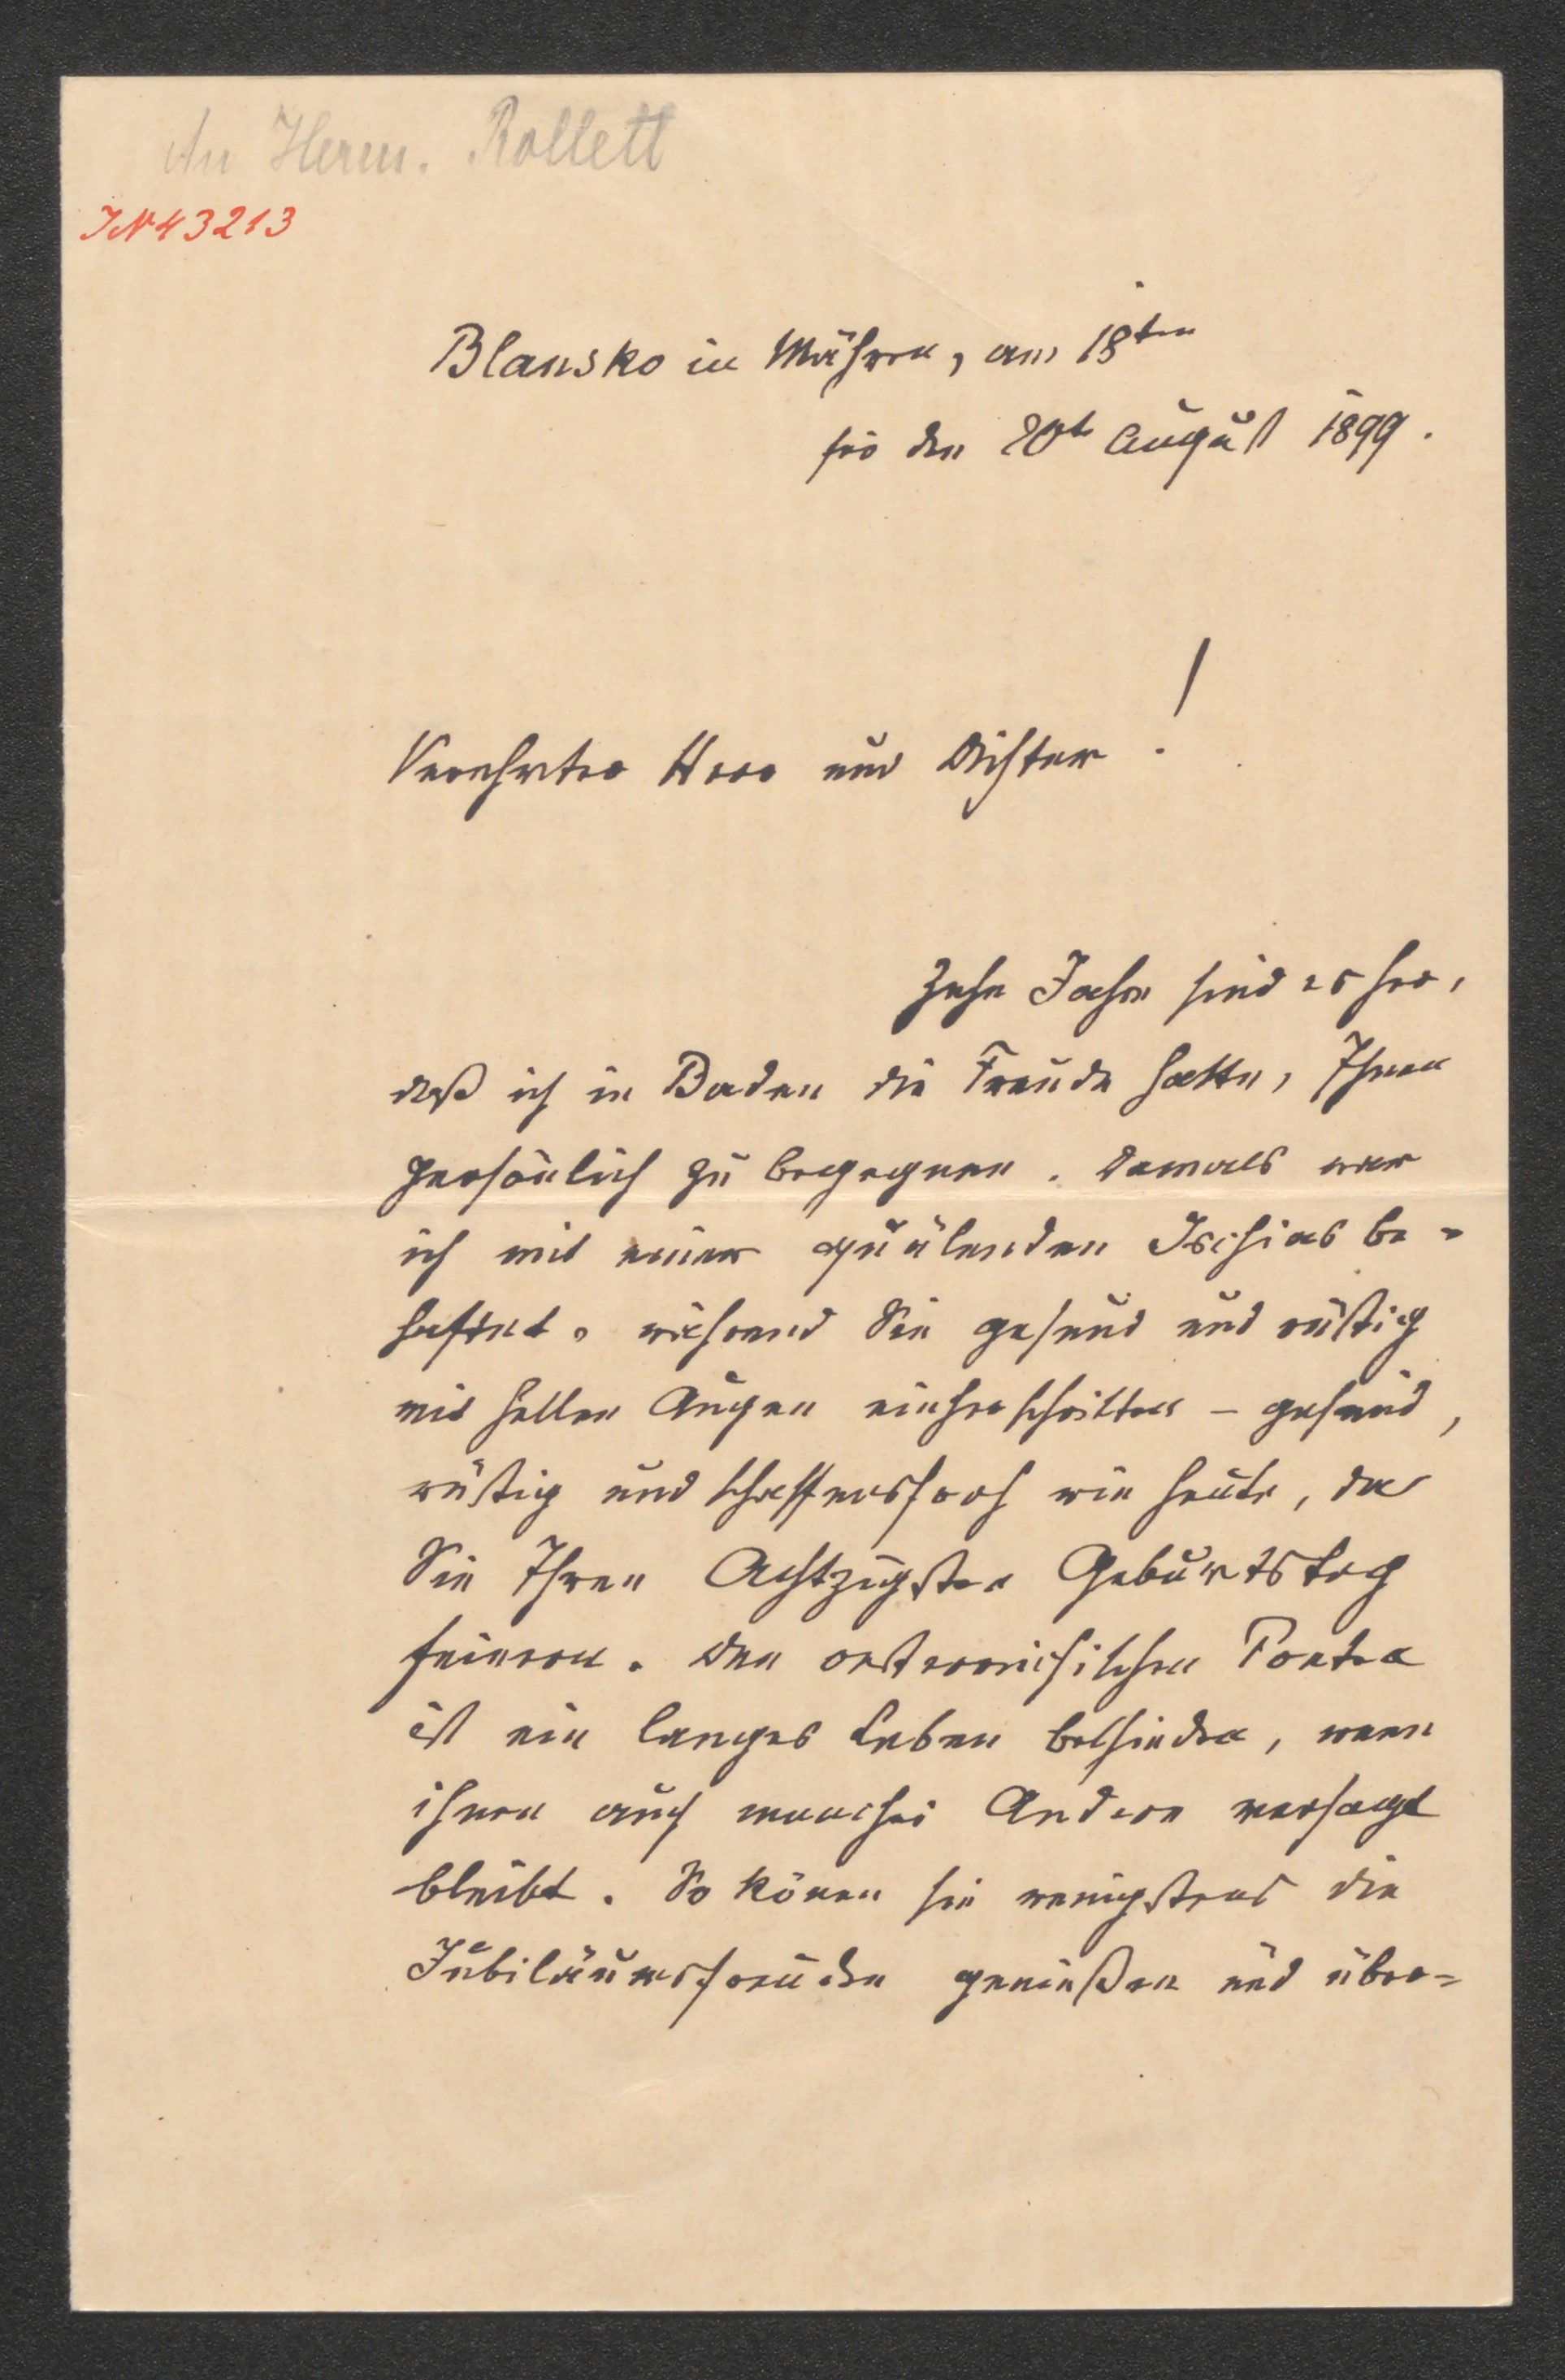 An Herm. Rollett
IN 43213
Blansko in Mähren, am 18ten
für den 20t August 1899.
Verehrter Herr und Dichter!
Zehn Jahre sind es her,
daß ich in Baden die Freude hatte, Ihnen
persönlich zu begegnen. Damals war
ich mit einer quälenden Ischias be-
haftet, während Sie gesund und rüstig
mit hellen Augen einherschritten – gesund,
rüstig und schaffensfroh wie heute, da
Sie Ihren Achtzigsten Geburtstag
feieren. Den oesterreichischen Poeten
ist ein langes Leben beschieden, wenn
ihnen auch mancherlei Andere versagt
bleibt. So können sie wenigstens die
Jubiläumsfreuden genießen und über-